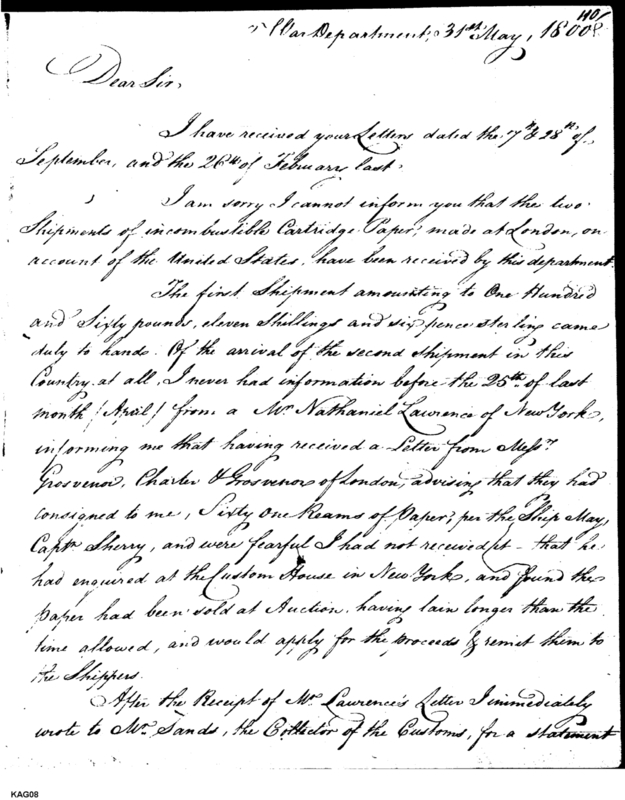 110
War Department, 31st May, 1800.
Dear Sir,
I have received your Letters dated the 7th & 28th of
September, and the 26th of February last.
I am sorry I cannot inform you that the two
Shipments of incombustible Cartridge Paper, made at London, on
account of the United States, have been received by this department.
The first Shipment amounting to One Hundred
and Sixty pounds, eleven Shillings and six pence sterling came
duly to hand. Of the arrival of the second shipment in this
Country at all, I never had information before the 25th of last
month (April) from a Mr Nathaniel Lawrence of New York,
informing me that having received a Letter from Messrs
Grosvenor, Charter & Grosvenor of London, advising that they had
consigned to me, Sixty One Reams of Paper, per the Ship May,
Captn Sherry, and were fearful I had not received it - that he
had enquired at the Custom House in New York, and found the
Paper had been sold at Auction, having lain longer than the
time allowed, and would apply for the proceeds & remit them to
the Shippers.
After the Receipt of Mr Lawrence's Letter I immediately
wrote to Mr Sands, the Collector of the Customs, for a statement
KAG08